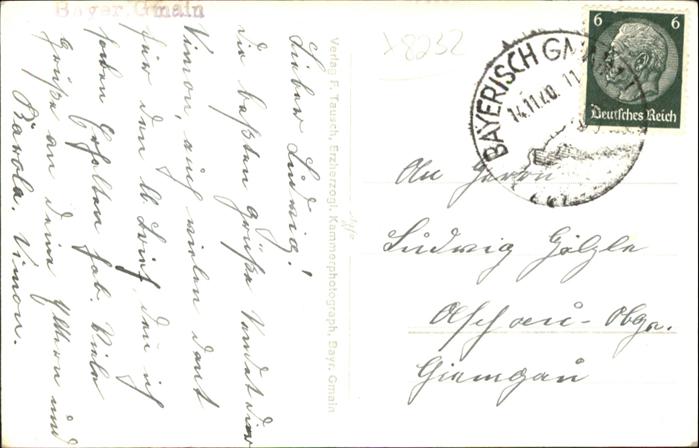 Bayer. Gmain
Lieber Ludwig!
die besten Grüße sendet dir
Simon, auch vielen Dank
für den lb Brief, den ich
soeben erhalten hab. Viele
Grüße an deine Eltern und
Karola. Simon.
Verlag F. Tausch, Erzherzogl. Kammerphotograph, Bayr. Gmain
8232
BAYERISCH GMAIN
14.11.40 11
6 6
Deutsches Reich
An Herrn
Ludwig Gölzle
Aschau - Obg.
Giemgau